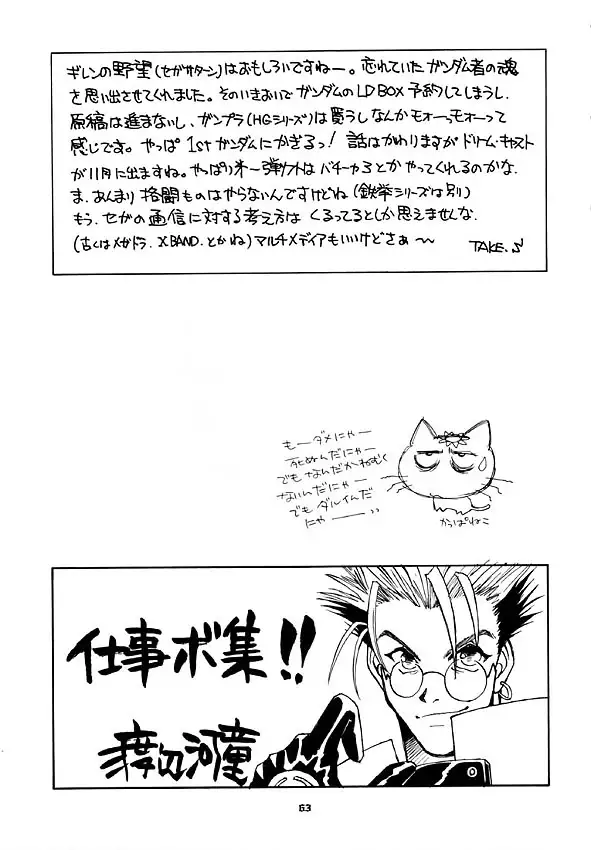 ギレンの野望(セガサターン)はおもしろいですねー。忘れていたガンダム者の魂
を思い出させてくれました。そのいきおいでガンダムのLD BOX 予約してしまうし、
原稿は進まないし、ガンプラ(HGシリーズ)は買うしなんかモォーっモォーって
感じです。やっぱ 1stガンダムにかぎるっ! 話はかわりますがドリーム・キャスト
が11月に出ますね。やっぱり米一弾ソフトはバーチャ3とかやってくれるのかな。
ま、あんまり格闘ものはやらないんですけどね(鉄拳シリーズは別)
もう、セガの通信に対する考え方は くるってるとしか思えませんな。
(古くはメガドラ. XBAND.とかね)マルチメディアもいいけどさぁ〜
TAKE.S
もーダメにゃー
死ぬんだにゃー
でもなんだかねむく
ないんだにゃー
でもダルイんだ
にゃー
かっぱねこ
仕事ボ集!!
渡辺河童
63